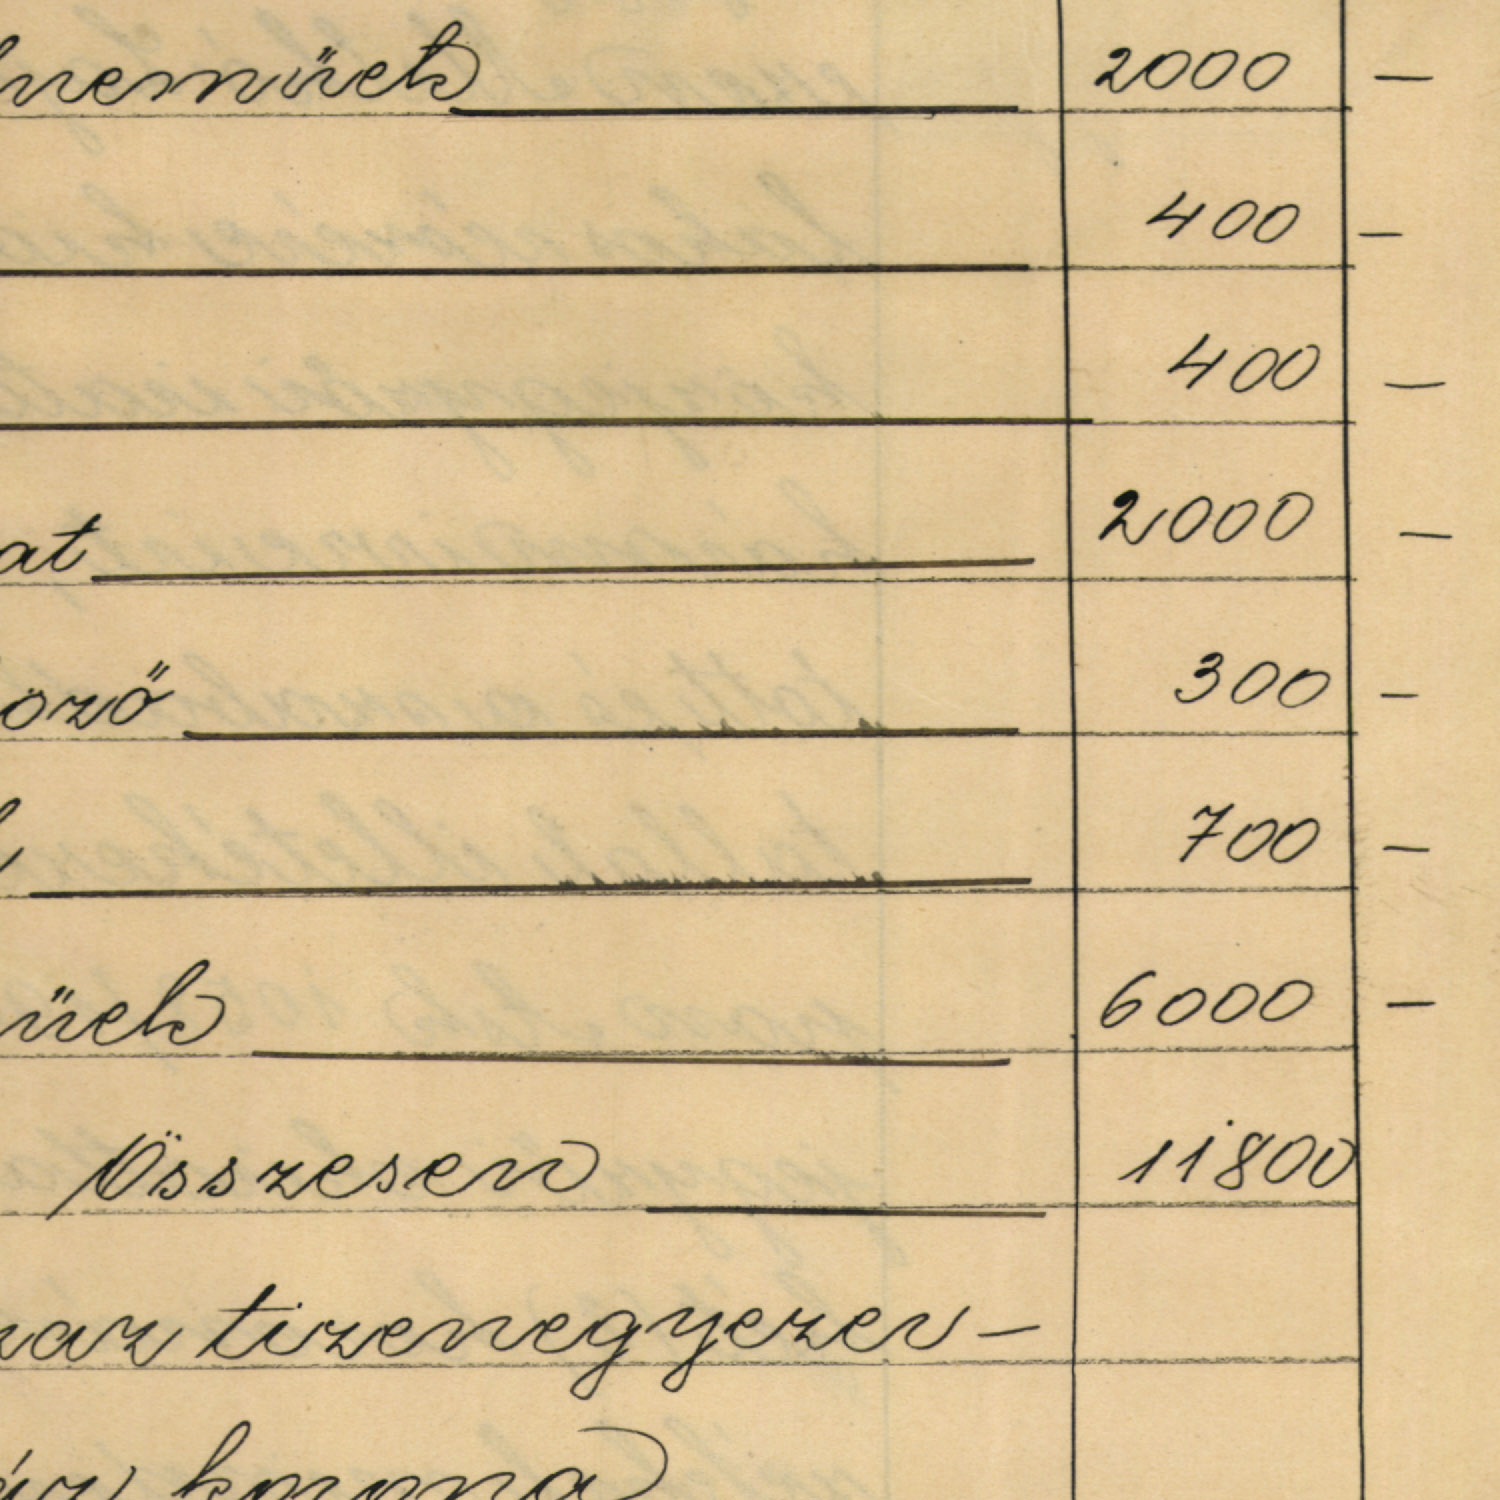 nemüek 2000 —
400 —
400 —
at 2000 —
öző 300 —
700 —
üek 6000 —
Összesen 11800
az tizenegyezer —
korona